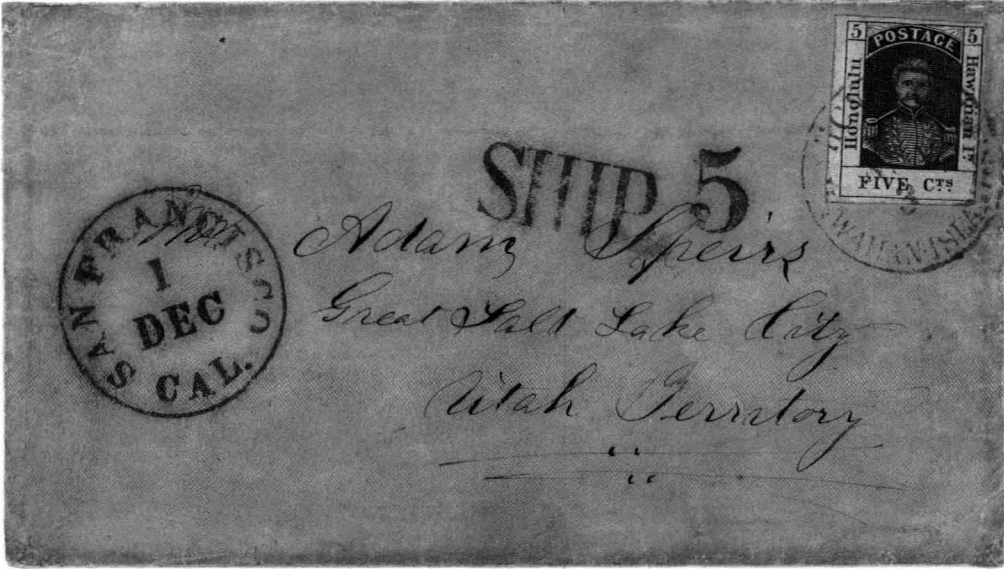 5 POSTAGE 5
Honolulu
Hawaiian Is.
FIVE CTS
SHIP 5
HAWAIIAN-ISLAN
SAN FRANCISCO
1
DEC
CAL.
Mr Adam Speirs
Great Salt Lake City
Utah Territory